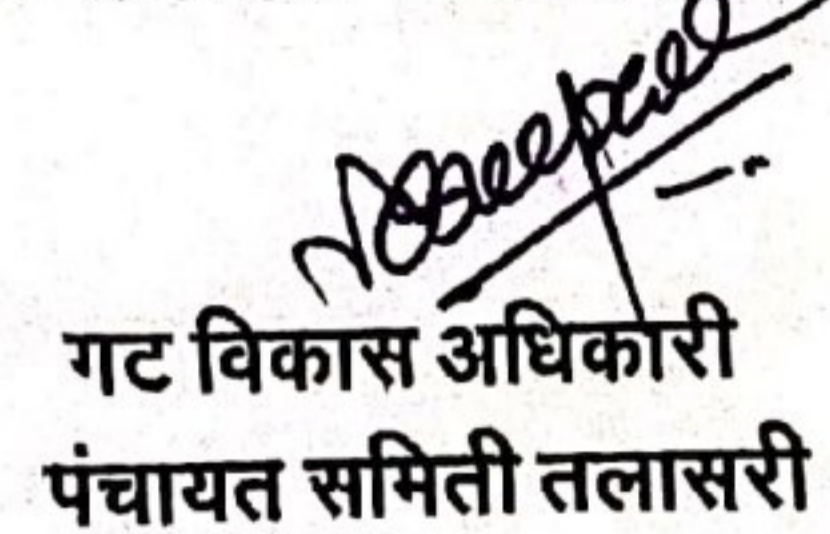 गट विकास अधिकारी
पंचायत समिती तलासरी